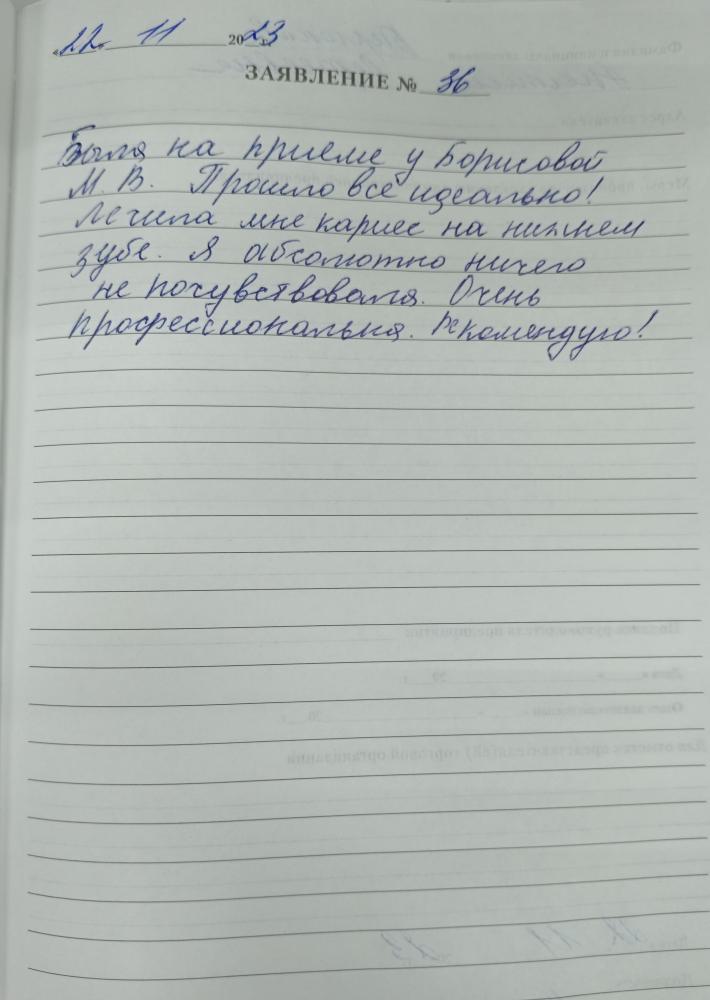 «22» 11 2023 г.
ЗАЯВЛЕНИЕ № 36
Была на приеме у Борисовой
М. В. Прошло все идеально!
Лечила мне кариес на нижнем
зубе. Я абсолютно ничего
не почувствовала. Очень
профессиональна. Рекомендую!